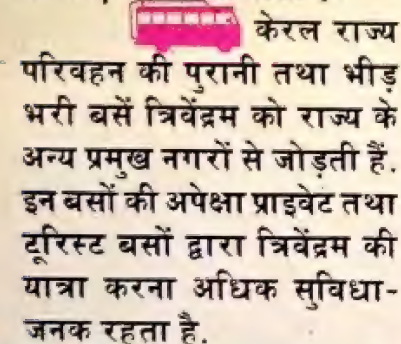 केरल राज्य
परिवहन की पुरानी तथा भीड़
भरी बसें त्रिवेंद्रम को राज्य के
अन्य प्रमुख नगरों से जोड़ती हैं.
इन बसों की अपेक्षा प्राइवेट तथा
टूरिस्ट बसों द्वारा त्रिवेंद्रम की
यात्रा करना अधिक सुविधा-
जनक रहता है.